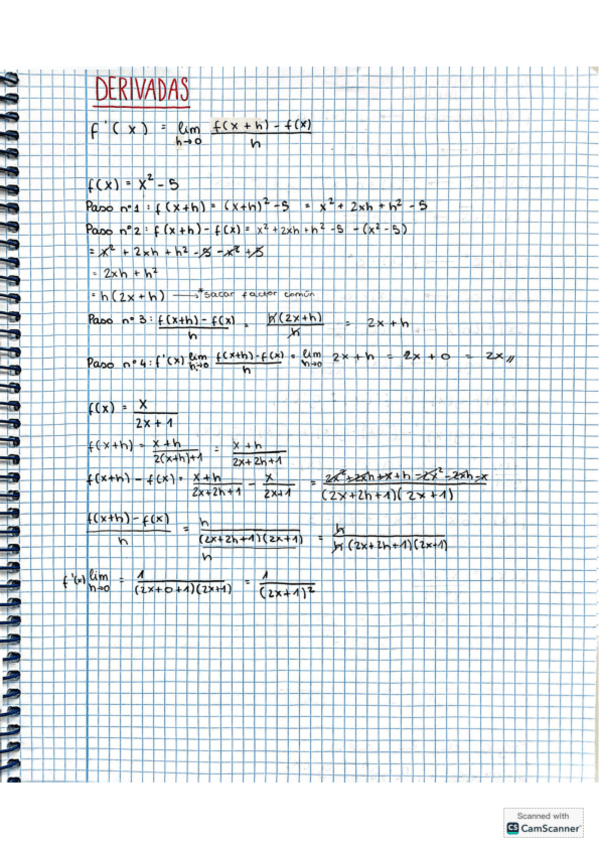 DERIVADAS
f'(x) = lim h→0 f(x+h) - f(x) / h
f(x) = x² - 5
Paso nº1: f(x+h) = (x+h)² - 5 = x² + 2xh + h² - 5
Paso nº2: f(x+h) - f(x) = x² + 2xh + h² - 5 - (x² - 5)
= x² + 2xh + h² - 5 - x² + 5
= 2xh + h²
= h(2x+h) → *sacar factor común
Paso nº3: f(x+h) - f(x) / h = h(2x+h) / h = 2x + h
Paso nº4: f'(x) lim h→0 f(x+h) - f(x) / h = lim h→0 2x + h = 2x + 0 = 2x //
f(x) = x / 2x + 1
f(x+h) = x+h / 2(x+h)+1 = x+h / 2x+2h+1
f(x+h) - f(x) = x+h / 2x+2h+1 - x / 2x+1 = 2x²+2xh+x+h-2x²-2xh-x / (2x+2h+1)(2x+1)
f(x+h) - f(x) / h = h / (2x+2h+1)(2x+1) / h = h / h(2x+2h+1)(2x+1)
f'(x) lim h→0 = 1 / (2x+0+1)(2x+1) = 1 / (2x+1)²
Scanned with
CS CamScanner